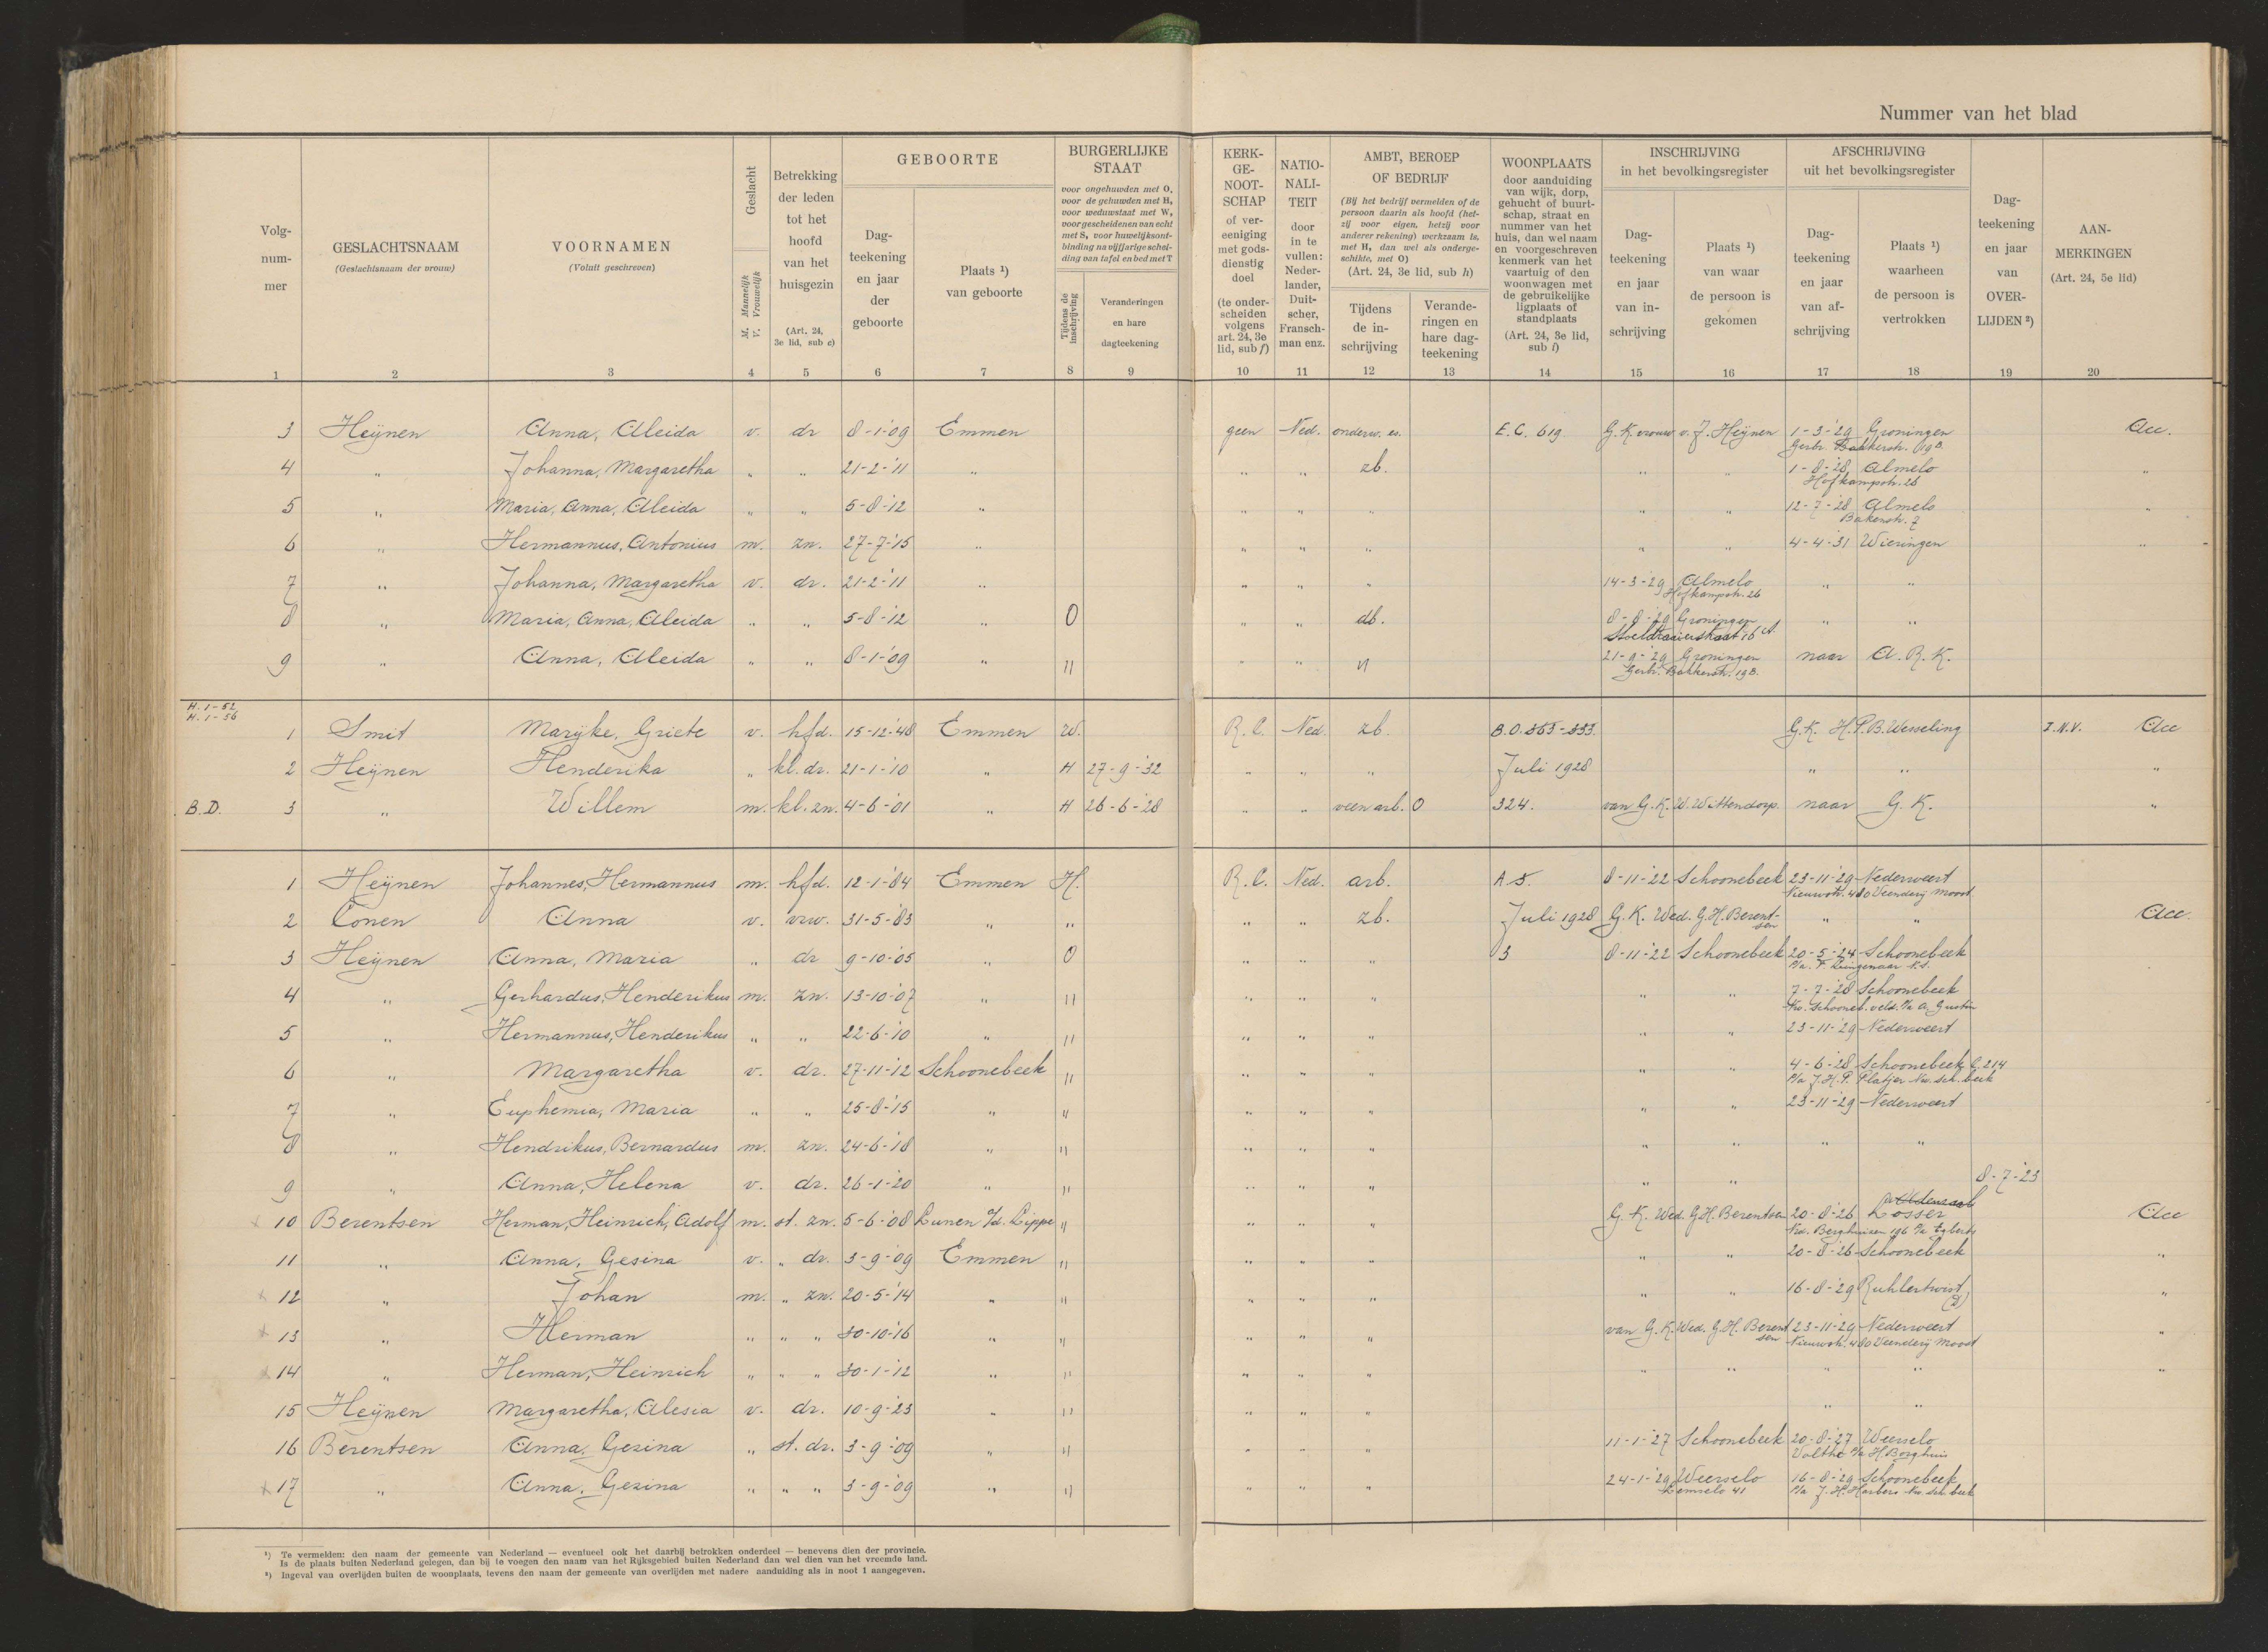 Nummer van het blad
Volg-nummer 1
GESLACHTSNAAM (Geslachtsnaam der vrouw) 2
VOORNAMEN (Voluit geschreven) 3
Geslacht M. Mannelijk V. Vrouwelijk 4
Betrekking der leden tot het hoofd van het huisgezin (Art. 24, 3e lid, sub c) 5
GEBOORTE
Dag-teekening en jaar der geboorte 6
Plaats ¹) van geboorte 7
BURGERLIJKE STAAT
voor ongehuwden met O, voor de gehuwden met H, voor weduwstaat met W, voor gescheidenen van echt met S, voor huwelijksont-binding na vijfjarige schei-ding van tafel en bed met T
Tijdens de inschrijving 8
Veranderingen en hare dagteekening 9
KERK-GE-NOOT-SCHAP of ver-eeniging met gods-dienstig doel (te onder-scheiden volgens art. 24, 3e lid, sub f) 10
NATIO-NALI-TEIT door in te vullen: Neder-lander, Duit-scher, Fransch-man enz. 11
AMBT, BEROEP OF BEDRIJF
(Bij het bedrijf vermelden of de persoon daarin als hoofd (het-zij voor eigen, hetzij voor anderer rekening) werkzaam is, met H, dan wel als onderge-schikte, met O)
(Art. 24, 3e lid, sub h)
Tijdens de in-schrijving 12
Verande-ringen en hare dag-teekening 13
WOONPLAATS door aanduiding van wijk, dorp, gehucht of buurt-schap, straat en nummer van het huis, dan wel naam en voorgeschreven kenmerk van het vaartuig of den woonwagen met de gebruikelijke ligplaats of standplaats (Art. 24, 3e lid, sub i) 14
INSCHRIJVING in het bevolkingsregister
Dag-teekening en jaar van in-schrijving 15
Plaats ¹) van waar de persoon is gekomen 16
AFSCHRIJVING uit het bevolkingsregister
Dag-teekening en jaar van af-schrijving 17
Plaats ¹) waarheen de persoon is vertrokken 18
Dag-teekening en jaar van OVER-LIJDEN ²) 19
AAN-MERKINGEN (Art. 24, 5e lid) 20
3 Heijnen Anna, Aleida v. dr 8-1-'09 Emmen geen Ned. onderw. es. E.C. 619 G.K. vrouw v. J. Heijnen 1-3-'29 Groningen Acc.
Gerbr. Bakkerstr. 19B.
4 " Johanna, Margaretha " " 21-2-'11 " " " zb. " " 1-8-'28 Almelo "
Hofkampstr. 26
5 " Maria, Anna, Aleida " " 5-8-'12 " " " " " " 12-7-'28 Almelo "
6 " Hermannus, Antonius m. zn. 27-7-'15 " " " " " " 4-4-31 Wieringen "
7 " Johanna, Margaretha v. dr. 21-2-'11 " " " " 14-3-'29 Almelo " "
Hofkampstr. 26
8 " Maria, Anna, Aleida " " 5-8-'12 " O " " db. 8-8-'29 Groningen " "
9 " Anna, Aleida " " 8-1-'09 " " " " " 21-9-'29 Groningen naar A.R.K.
Gerbr. Bakkerstr. 19B.
H. 1-52
H. 1-56
1 Smit Marijke, Griete v. hfd. 15-12-'48 Emmen W. R.C. Ned. zb. B.O. G.K. H.P.B. Wesseling I.N.V. Acc
2 Heijnen Henderika " kl. dr. 21-1-'10 " H 27-9-'32 " " " Juli 1928 " " "
B.D. 3 " Willem m. kl. zn. 4-6-'01 " H 26-6-'28 " " veen arb. O 324. van G.K. W. Wittendorp. naar G.K. "
1 Heijnen Johannes, Hermannus m. hfd. 12-1-'84 Emmen H. R.C. Ned. arb. A 5. 8-11-'22 Schoonebeek 23-11-'29 Nederweert
Nieuwstr. 480 Veenderij Moost
2 Conen Anna v. vrw. 31-5-'83 " " " " zb. Juli 1928 G.K. Wed. G.H. Berentsen " " Acc.
3 Heijnen Anna, Maria " dr 9-10-'05 " O " " " 3 8-11-'22 Schoonebeek 20-5-'24 Schoonebeek
4 " Gerhardus, Henderikus m. zn. 13-10-'07 " " " " " " " 7-7-'28 Schoonebeek
Nw. Schooneb. veld. p/a A. Gustin
5 " Hermannus, Henderikus " " 22-6-'10 " " " " " " " 23-11-'29 Nederweert
6 " Margaretha v. dr. 27-11-'12 Schoonebeek " " " " " " 4-6-'28 Schoonebeek C. 214
p/a J.H.P. Platjer Nw. Sch. beek
7 " Euphemia, Maria " " 25-8-'15 " " " " " " " 23-11-'29 Nederweert
8 " Hendrikus, Bernardus m. zn. 24-6-'18 " " " " " " " " "
9 " Anna, Helena v. dr. 26-1-'20 " " " " " " " 8-7-'23
x 10 Berentsen Herman, Heinrich, Adolf m. st. zn. 5-6-'08 Lunen a/d. Lippe " " " " G.K. Wed. G.H. Berentsen 20-8-'26 Losser Acc
Nd. Berghuizen 196 p/a Egberts
11 " Anna, Gesina v. " dr. 3-9-'09 Emmen " " " " " " 20-8-'26 Schoonebeek "
x 12 " Johan m. " zn. 20-5-'14 " " " " " " " 16-8-'29 Ruhlertwist (D) "
x 13 " Herman " " " 30-10-'16 " " " " " van G.K. Wed. G.H. Berentsen 23-11-'29 Nederweert "
Nieuwstr. 480 Veenderij Moost
x 14 " Herman, Heinrich " " " 30-1-'12 " " " " " " " " " "
15 Heijnen Margaretha, Alesia v. dr. 10-9-'23 " " " " " " "
16 Berentsen Anna, Gezina " st. dr. 3-9-'09 " " " " " 11-1-'27 Schoonebeek 20-8-'27 Weerselo
Volthe p/a H. Borghuis
x 17 " Anna, Gezina " " " 3-9-'09 " " " " " 24-1-'29 Weerselo 16-8-'29 Schoonebeek
Lemselo 41 p/a J.H. Harbers Nw. Sch. beek
¹) Te vermelden: den naam der gemeente van Nederland — eventueel ook het daarbij betrokken onderdeel — benevens dien der provincie.
Is de plaats buiten Nederland gelegen, dan bij te voegen den naam van het Rijksgebied buiten Nederland dan wel dien van het vreemde land.
²) Ingeval van overlijden buiten de woonplaats, tevens den naam der gemeente van overlijden met nadere aanduiding als in noot 1 aangegeven.